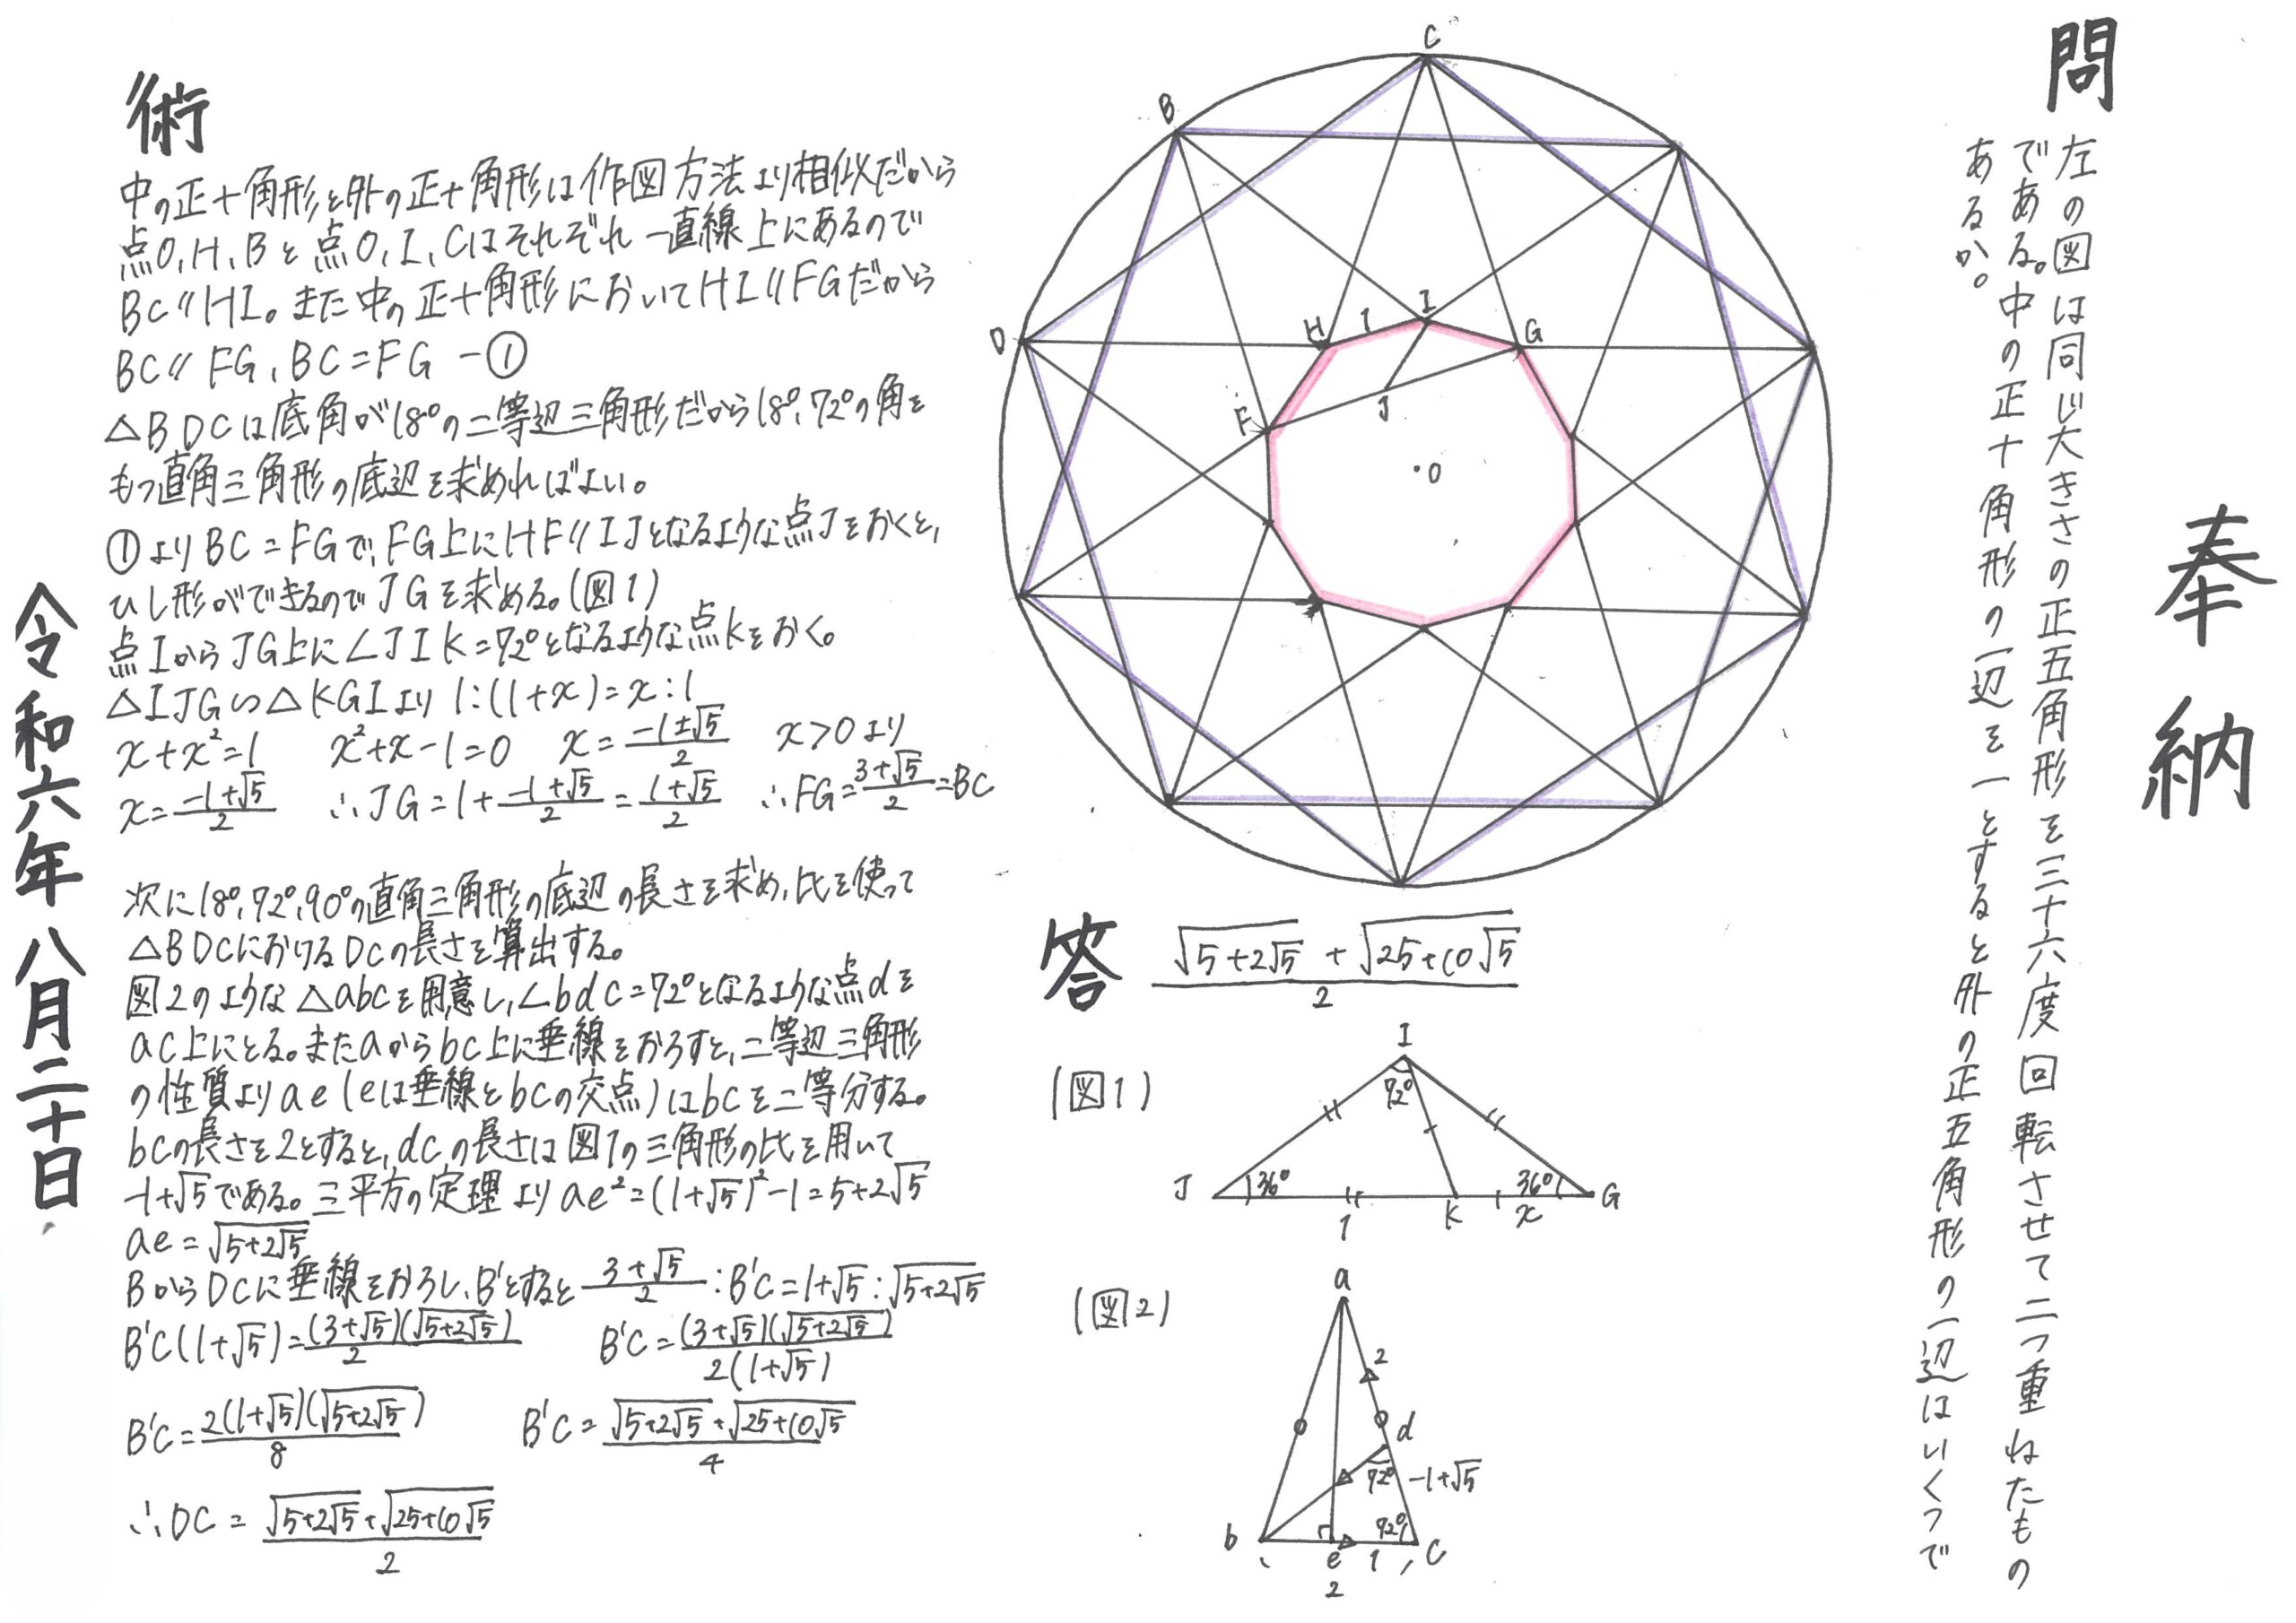 奉納
問
左の図は同じ大きさの正五角形を三十六度回転させて二つ重ねたもの
である。中の正十角形の一辺を一とすると外の正五角形の一辺はいくつで
あるか。
C
B
D
H
1
I
G
F
J
O
答
√(5+2√5) + √(25+10√5) / 2
(図1)
I
72°
J
36°
1
K
x
36°
G
(図2)
a
2
d
72°
-1+√5
b
e
1
72°
C
2
術
中の正十角形と外の正十角形は作図方法より相似だから
点O,H,Bと点O,I,Cはそれぞれ一直線上にあるので
BC//HI。また中の正十角形においてHI//FGだから
BC//FG,BC=FG -①
△BDCは底角が18°の二等辺三角形だから18°,72°の角を
もつ直角三角形の底辺を求めればよい。
①よりBC=FGで,FG上にHF//IJとなるような点Jをおくと,
ひし形ができるのでJGを求める。(図1)
点IからJG上に∠JIK=72°となるような点Kをおく。
△IJG∽△KGIより 1:(1+x)=x:1
x+x²=1 x²+x-1=0 x=(-1±√5)/2 x>0より
x=(-1+√5)/2 ∴JG=1+(-1+√5)/2=(1+√5)/2 ∴FG=(3+√5)/2=BC
次に18°,72°,90°の直角三角形の底辺の長さを求め,比を使って
△BDCにおけるDCの長さを算出する。
図2のような△abcを用意し,∠bdc=72°となるような点dを
ac上にとる。またaからbc上に垂線をおろすと,二等辺三角形
の性質よりae(eは垂線とbcの交点)はbcを二等分する。
bcの長さを2とすると,dcの長さは図1の三角形の比を用いて
-1+√5である。三平方の定理よりae²=(1+√5)²-1=5+2√5
ae=√(5+2√5)
BからDCに垂線をおろし,B'とすると (3+√5)/2:B'C=1+√5:√(5+2√5)
B'C(1+√5)=(3+√5)(√(5+2√5))/2 B'C=(3+√5)(√(5+2√5))/2(1+√5)
B'C=2(1+√5)(√(5+2√5))/8 B'C=√(5+2√5)+√(25+10√5)/4
∴DC=√(5+2√5)+√(25+10√5)/2
令和六年八月二十日